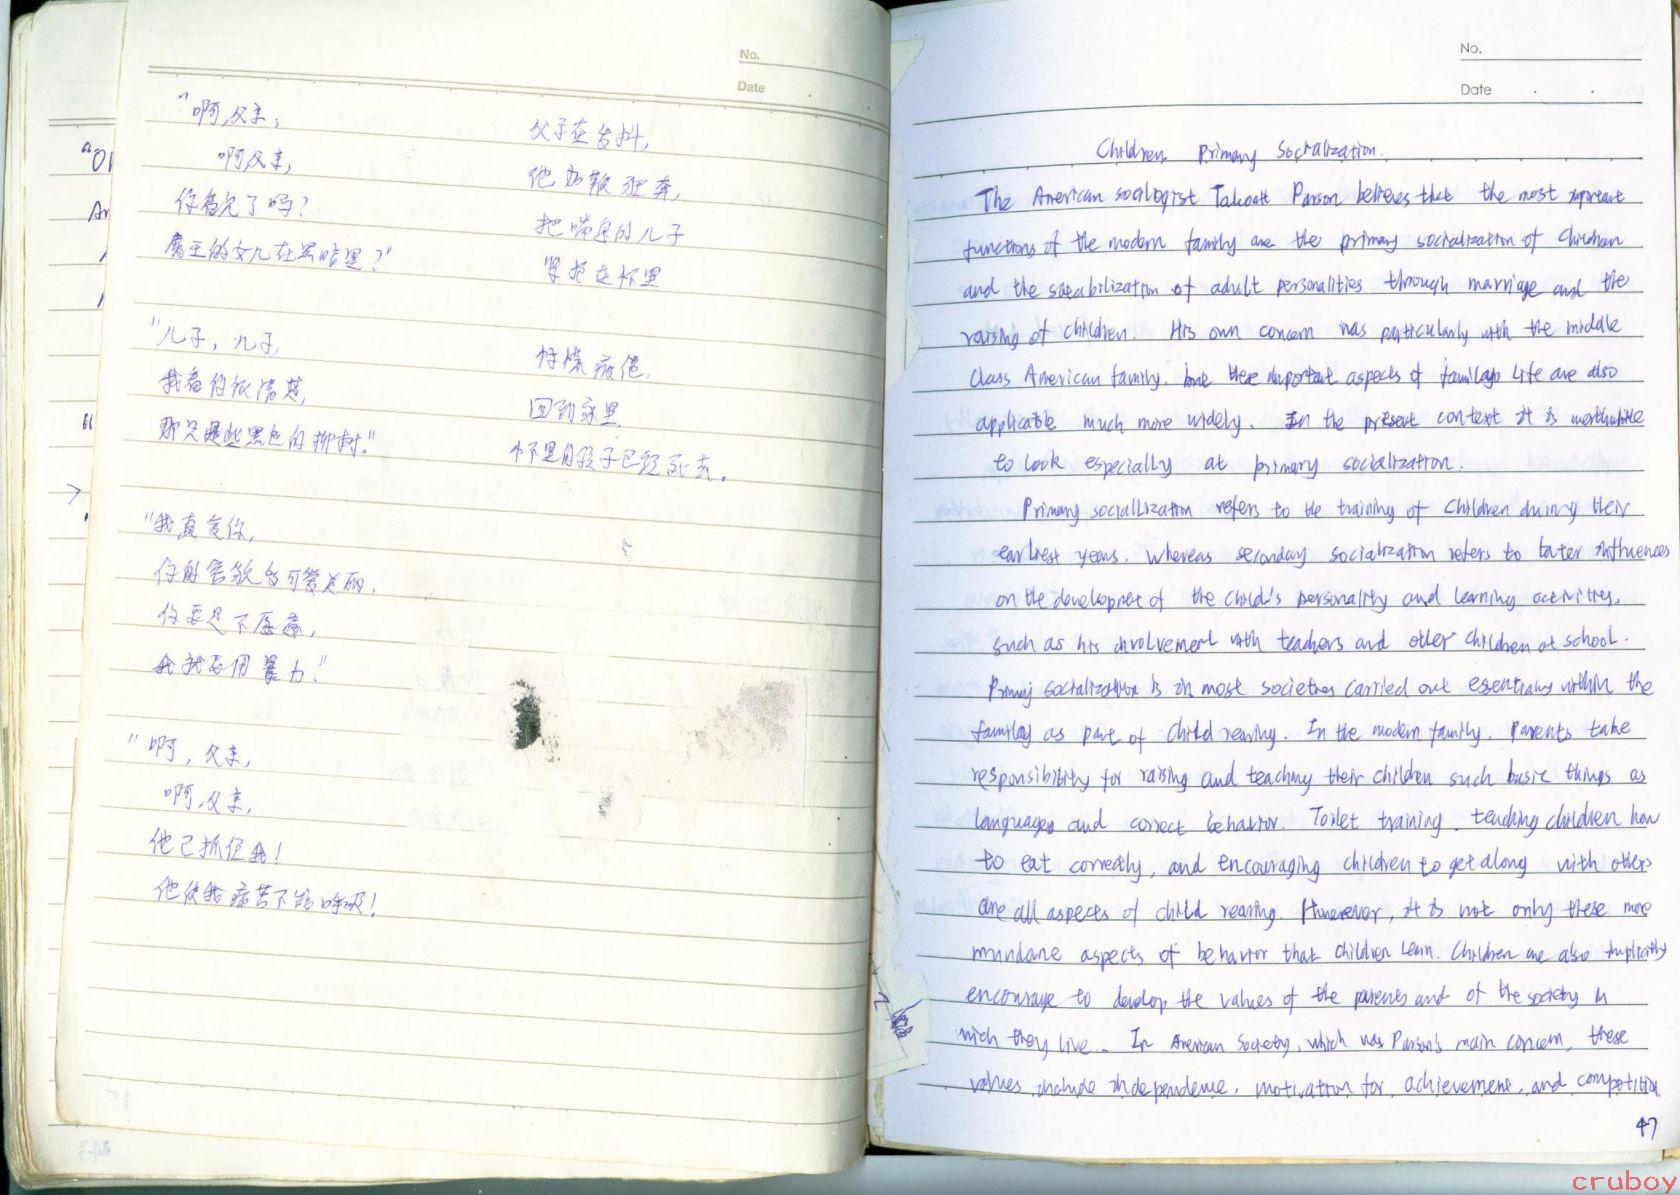 No.
Date
"啊,父亲,
啊父亲,
你看见了吗?
魔王的女儿在黑暗里?"
"儿子,儿子,
我看的很清楚,
那只是些黑色的柳树."
"我真爱你,
你的容貌多可爱美丽.
你要是不愿意,
我就要用暴力!"
"啊,父亲,
啊,父亲,
他已抓住我!
他使我痛苦不能呼吸!
父子在
他加鞭狂奔,
把喘息的儿子
紧抱在怀里
疲倦.
回到家里
怀里的孩子已经死去.
"Oh
An
No.
Date
Children Primary Socialization.
The American sociologist Talcott Parson believes that the most important
functions of the modern family are the primary socialization of children
and the stabilization of adult personalities through marriage and the
raising of children. His own concern was particularly with the middle
class American family. but these important aspects of family life are also
applicable much more widely. In the present context it is worthwhile
to look especially at primary socialization.
Primary socialization refers to the training of children during their
earliest years. whereas secondary socialization refers to later influences
on the development of the child's personality and learning activities,
such as his involvement with teachers and other children at school.
Primary socialization is in most societies carried out essentially within the
family as part of child rearing. In the modern family, parents take
responsibility for raising and teaching their children such basic things as
languages and correct behavior. Toilet training, teaching children how
to eat correctly, and encouraging children to get along with others
are all aspects of child rearing. However, it is not only these more
mundane aspects of behavior that children learn. Children are also implicitly
encourage to develop the values of the parents and of the society in
wich they live. In American Society, which was Parson's main concern, these
values include independence, motivation for achievement, and competition
47
cruboy